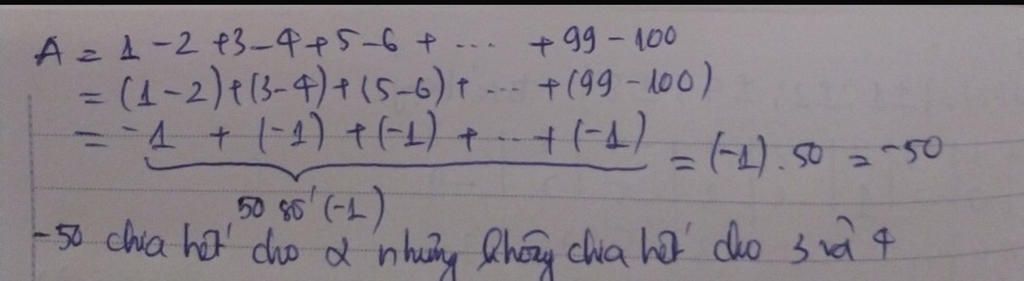 A = 1 - 2 + 3 - 4 + 5 - 6 + ... + 99 - 100
= (1 - 2) + (3 - 4) + (5 - 6) + ... + (99 - 100)
= -1 + (-1) + (-1) + ... + (-1) = (-1) . 50 = -50
50 số (-1)
-50 chia hết cho 2 nhưng không chia hết cho 3 và 4